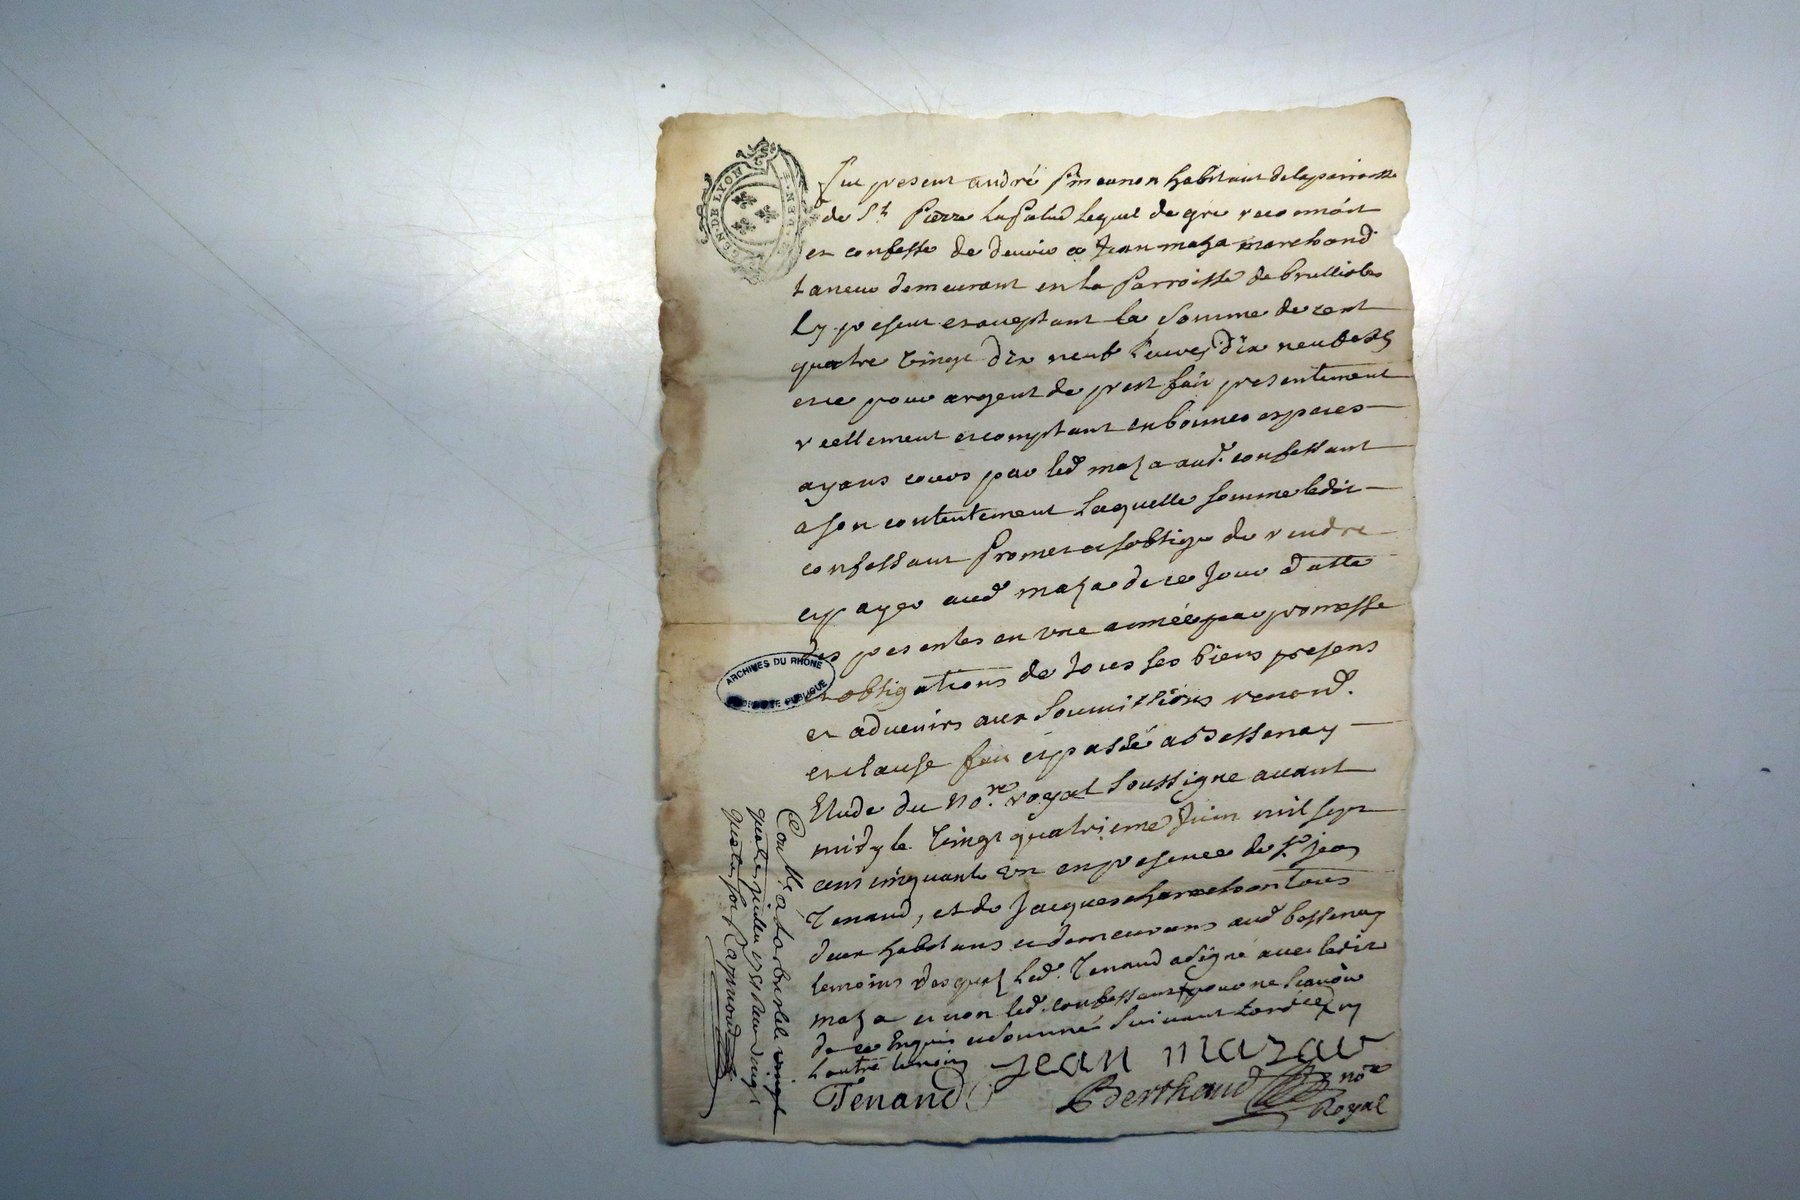 GEN. DE LYON
Fut present andré Simeanon habitant de la parroisse
de St. Pierre La Palud lequel de gré reconnoit
et confesse de devoir a Jean maza marchand
taneur demeurant en la Parroisse de brullioles
Cy present et aceptant la somme de cent
quatre vingt dix neuf livres dix neuf sols
et ce pour argent de prest fait presentement
reellement et comptant en bonnes especes
ayans cours par led. maza aud. confessant
a son contentement laquelle somme ledit
confessant Promet et soblige de rendre
et payer aud maza de ce Jour datte
des presentes en une année par promesse
et obligations de tous ses biens presens
et advenirs aux soumissions renond.
et clause fait et passé a Bessenay
Etude du no.re royal soussigne avant
midy le vingt quatrieme Juin mil sept
cent cinquante un en presence de Sr. jean
Tenaud, et de Jacques tous
deux habitans et demeurans aud bessenay
temoins desquels led. Tenaud a signé avec ledit
maza et non led. confessant pour ne scavoir
de ce Enquis et sommé suivant Lord.ce ny
Lautre temoin
jean mazau
Tenaud
Berthaud no.re
Royal
ARCHIVES DU RHONE
PROPRIETE PUBLIQUE
Con.lé a Larbresle vingt
quatre juillet 1751 Reçu vingt
quatre sols Raymond